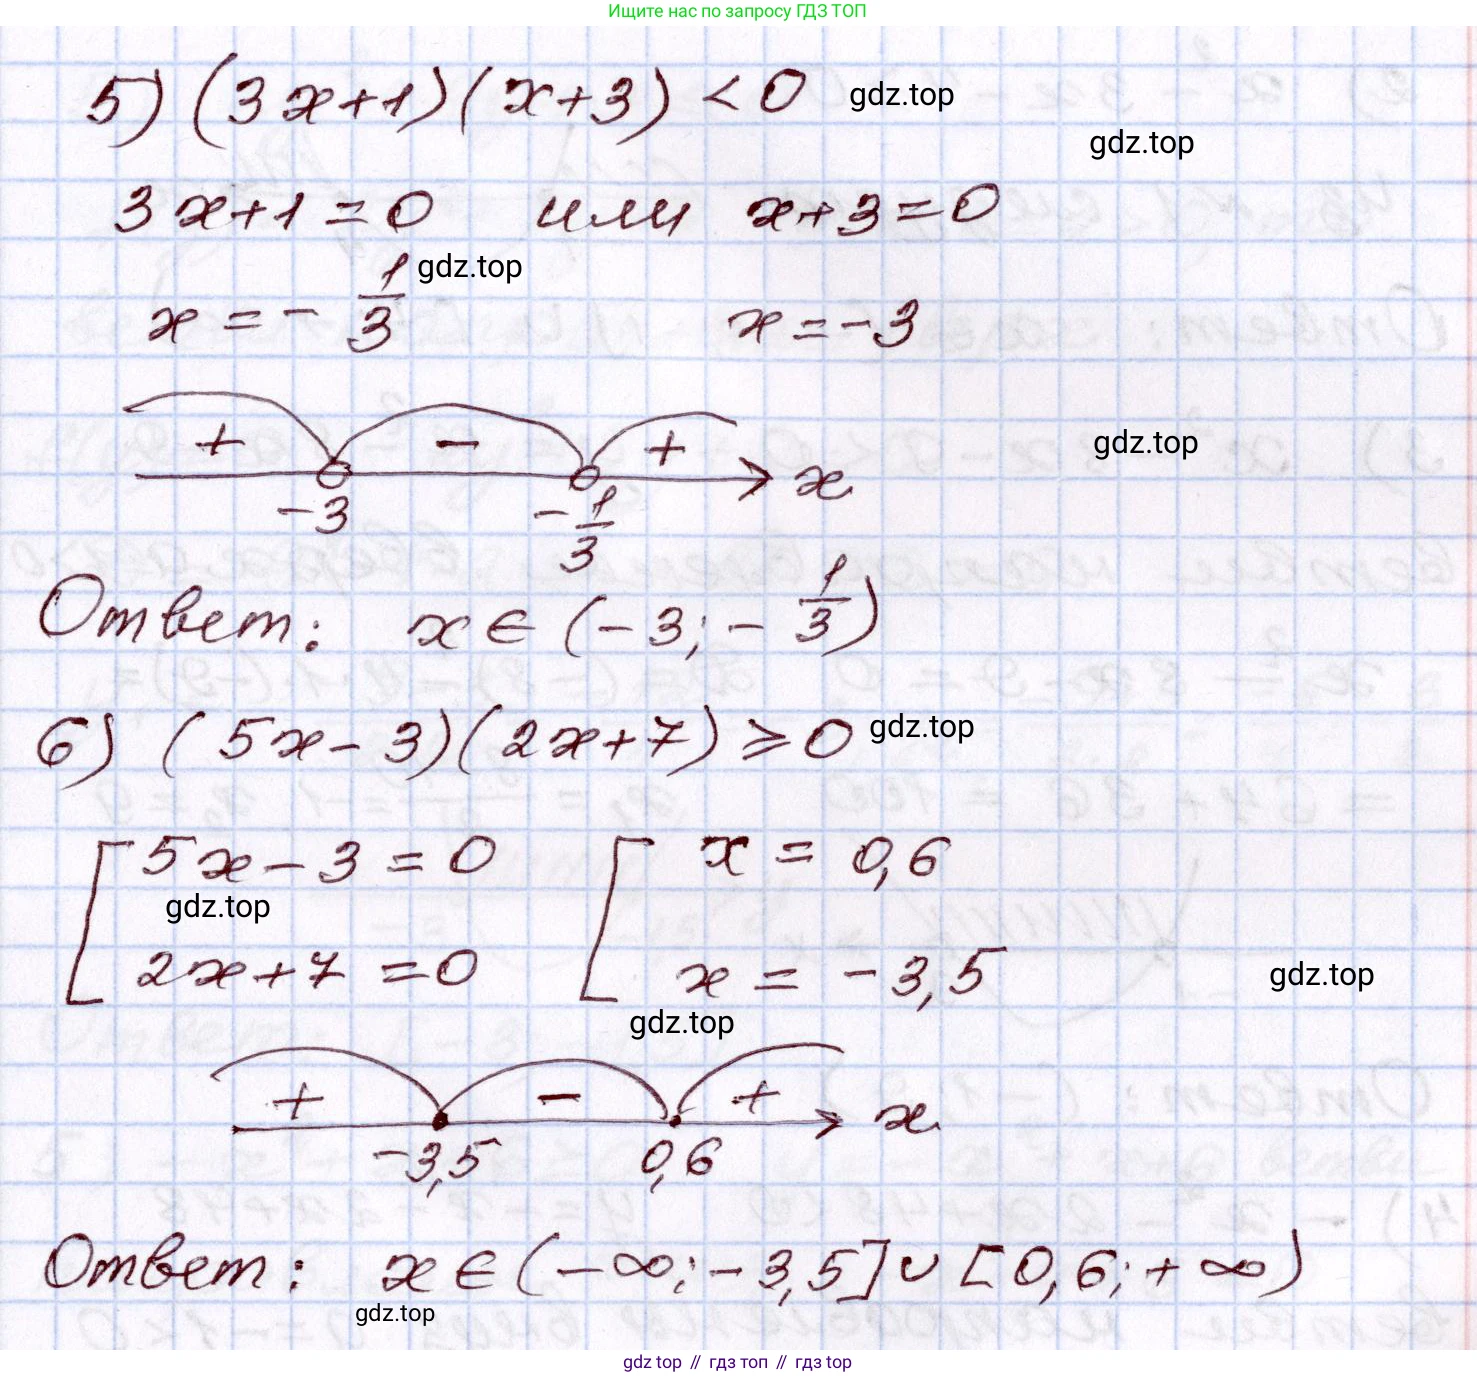 Ищите нас по запросу ГДЗ ТОП
5) (3x+1)(x+3) < 0 gdz.top
gdz.top
3x+1=0 или x+3=0
gdz.top
x = -1/3 x = -3
+ - + x
gdz.top
-3 -1/3
Ответ: x ∈ (-3; -1/3)
6) (5x-3)(2x+7) ⩾ 0 gdz.top
[ 5x-3=0 [ x = 0,6
gdz.top
2x+7=0 x = -3,5
gdz.top
gdz.top
+ - + x
-3,5 0,6
Ответ: x ∈ (-∞; -3,5] ∪ [0,6; +∞)
gdz.top
gdz.top // гдз топ // гдз.top